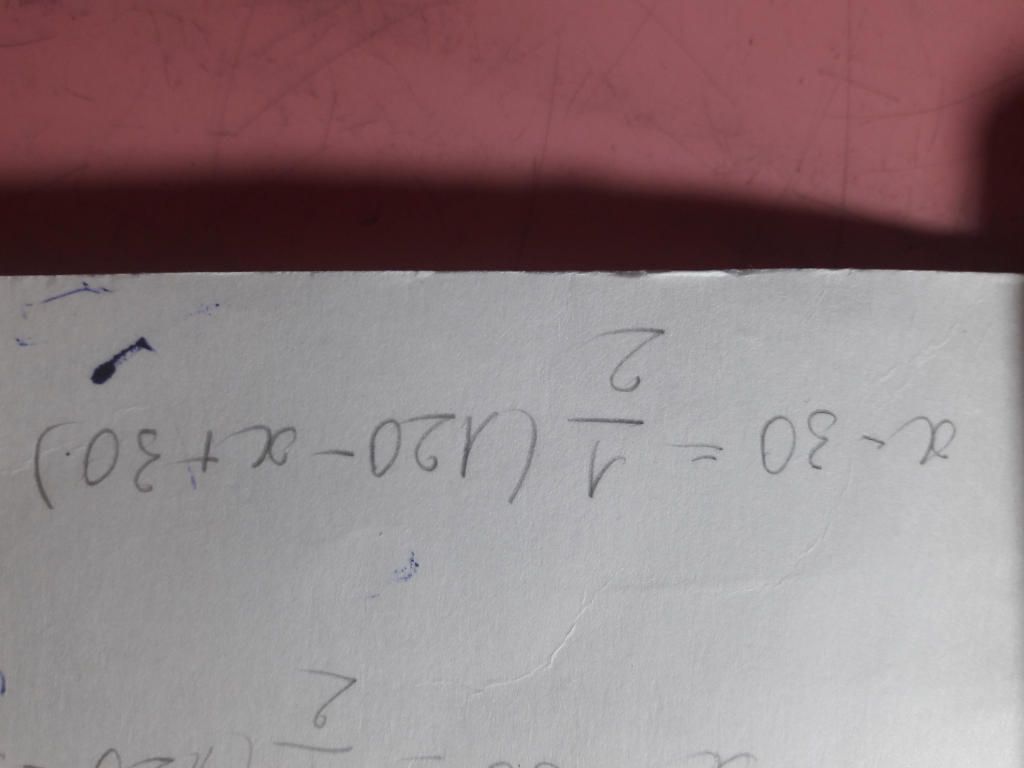 x - 30 = \frac{1}{2} (120 - x + 30)